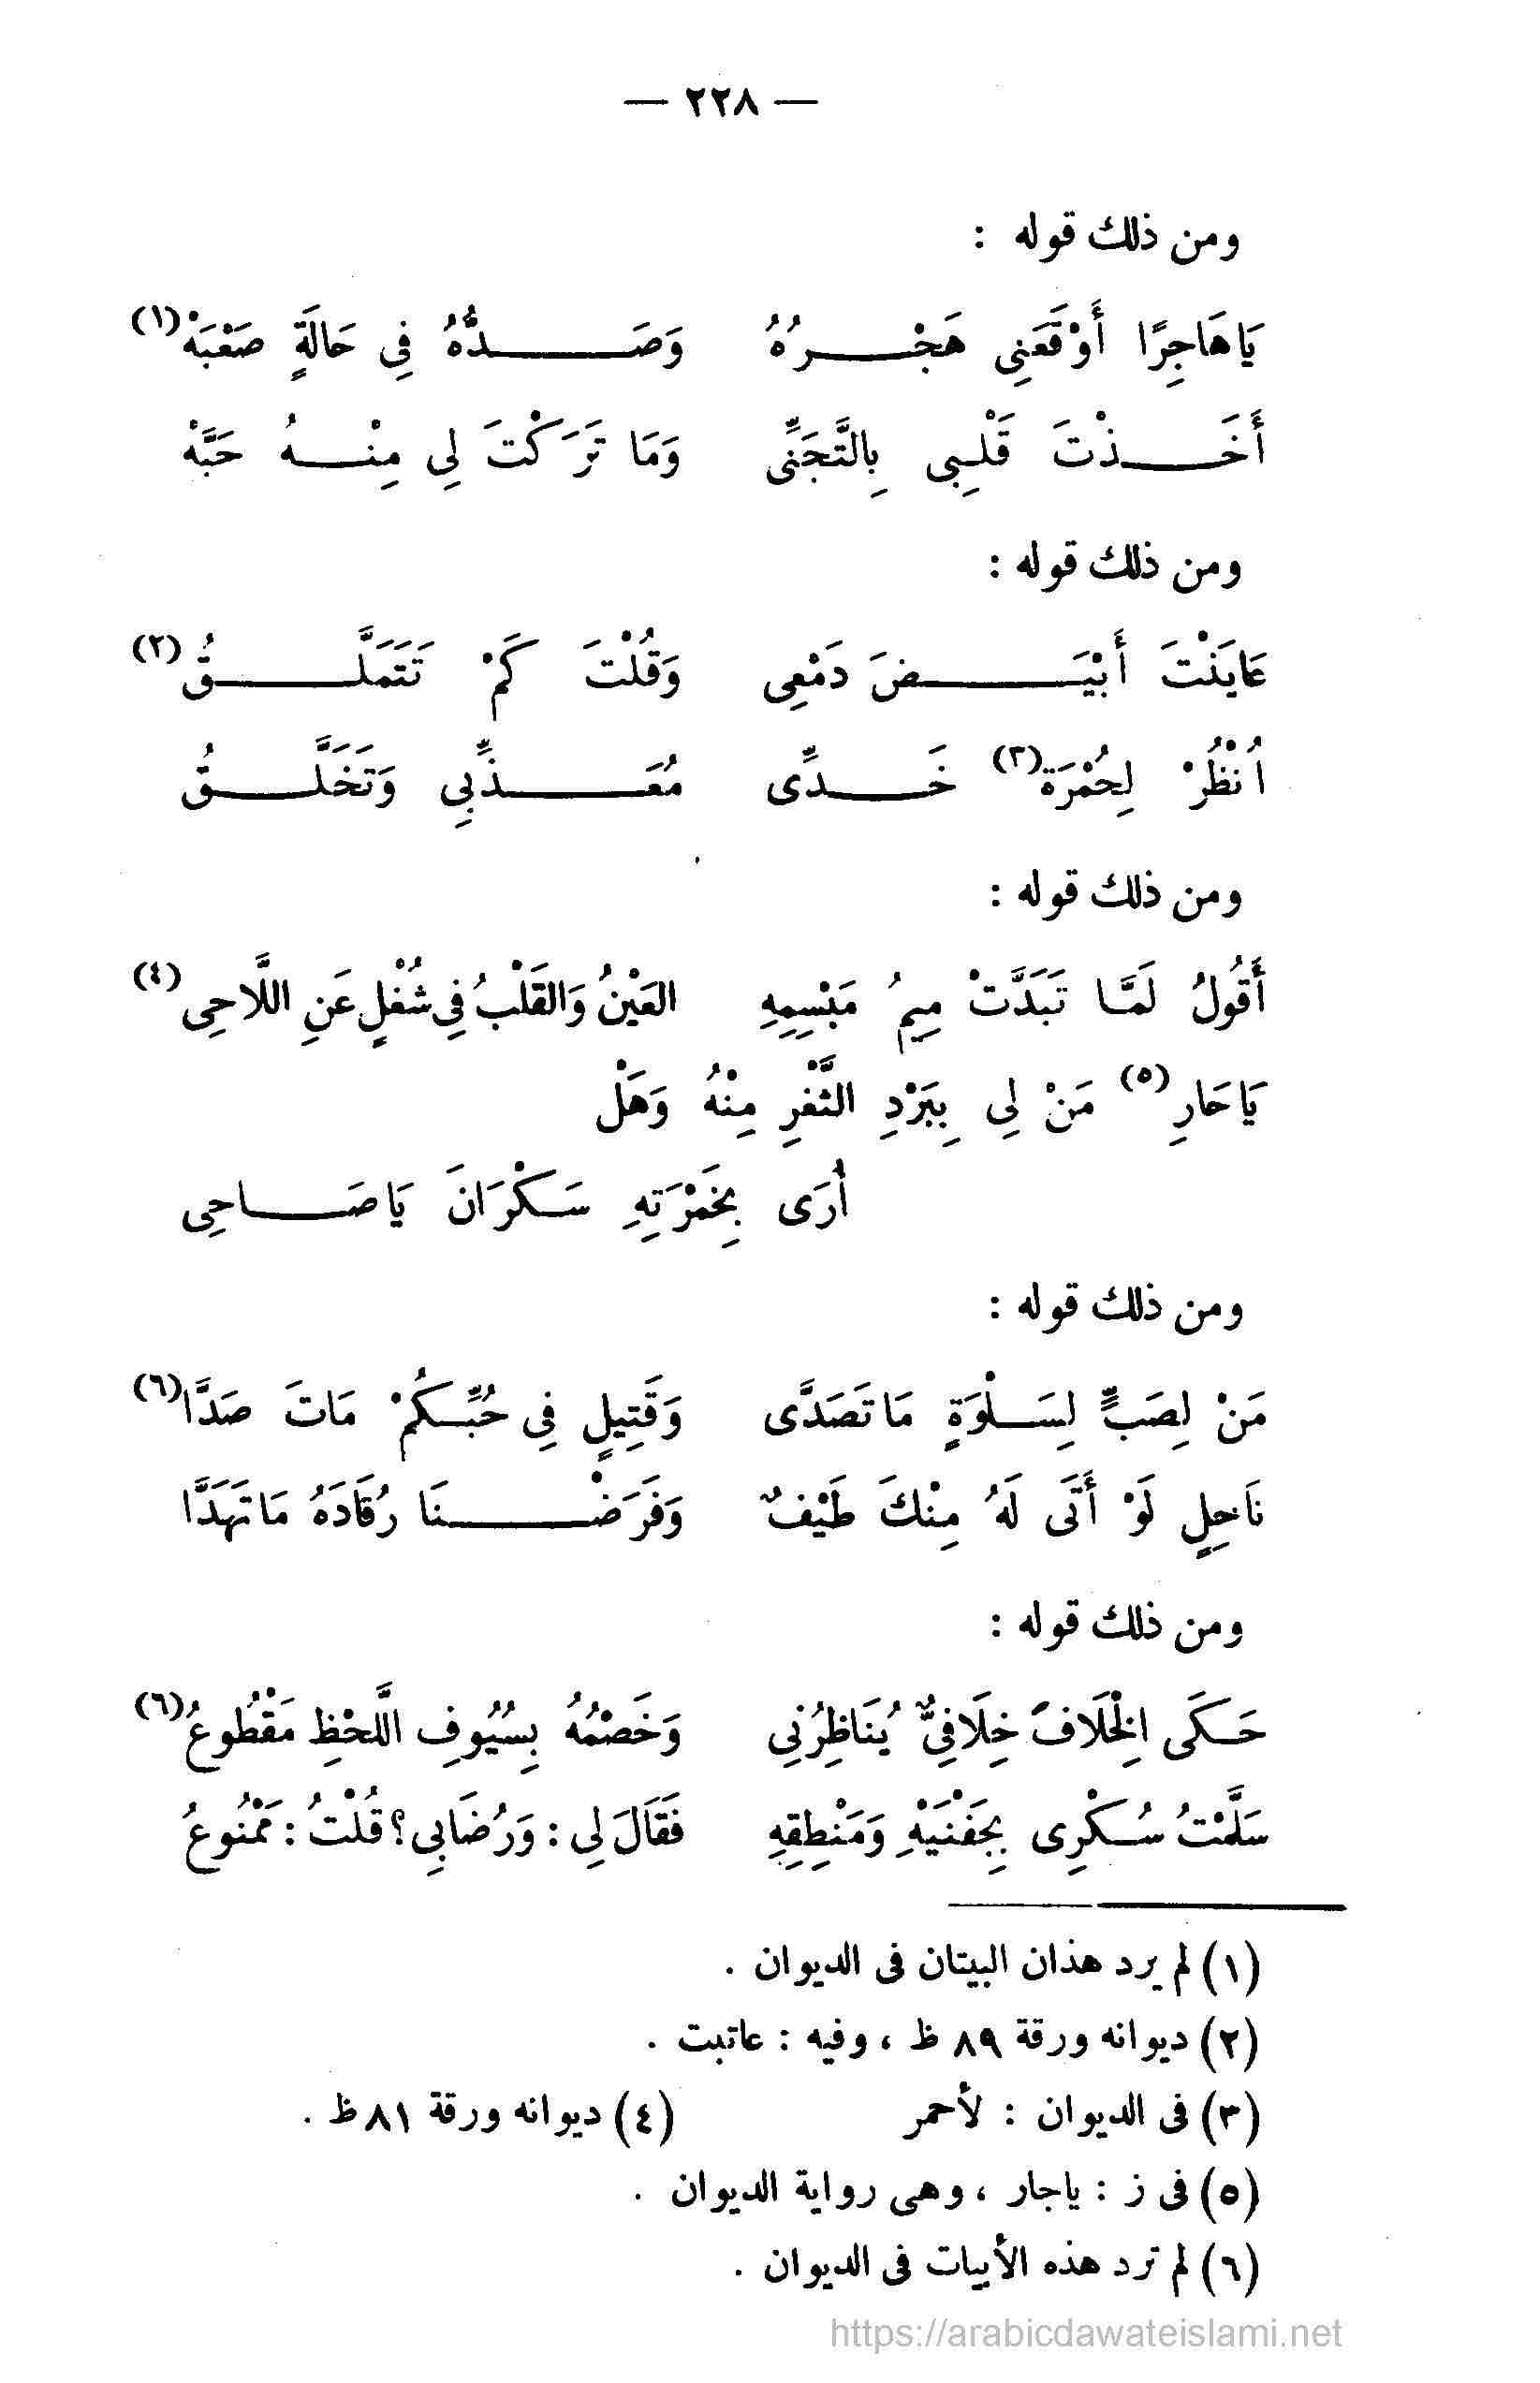 — ٢٢٨ —
ومن ذلك قوله :
يَا هَاجِرًا أَوْقَعَنِى هَجْرُهُ وَصَدُّهُ فِى حَالَةٍ صَعْبَهْ (١)
أَخَذْتَ قَلْبِى بِالتَّجَنِّى وَمَا تَرَكْتَ لِى مِنْهُ حَبَّهْ
ومن ذلك قوله :
عَايَنْتَ أَبْيَضَ دَمْعِى وَقُلْتَ كَمْ تَتَمَلَّقُ (٢)
اُنْظُرْ لِحُمْرَة (٣) خَدِّى مُعَذِّبِى وَتَخَلَّقُ
ومن ذلك قوله :
أَقُولُ لَمَّا تَبَدَّتْ مِيمُ مَبْسِمِهِ العَيْنُ وَالقَلْبُ فِى شُغْلٍ عَنِ اللَّاحِى (٤)
يَا حَارِ (٥) مَنْ لِى بِبَرْدِ الثَّغْرِ مِنْهُ وَهَلْ
أُرَى بِخَمْرَتِهِ سَكْرَانَ يَا صَاحِى
ومن ذلك قوله :
مَنْ لِصَبٍّ لِسَلْوَةٍ مَا تَصَدَّى وَقَتِيلٍ فِى حُبِّكُمْ مَاتَ صَدَّا (٦)
نَاحِلٍ لَوْ أَتَى لَهُ مِنْكَ طَيْفٌ وَفَرَضْنَا رُقَادَهُ مَا تَهَدَّا
ومن ذلك قوله :
حَكَى الِخْلَافَ خِلَافِىٌّ يُنَاظِرُنِى وَخَصْمُهُ بِسُيُوفِ اللَّحْظِ مَقْطُوعُ (٦)
سَلَّمْتُ سُكْرِى بِجَفْنَيْهِ وَمَنْطِقِهِ فَقَالَ لِى : وَرُضَابِى؟ قُلْتُ : مَمْنُوعُ
(١) لم يرد هذان البيتان فى الديوان .
(٢) ديوانه ورقة ٨٩ ظ ، وفيه : عاتبت .
(٣) فى الديوان : لأحمر (٤) ديوانه ورقة ٨١ ظ .
(٥) فى ز : ياجار ، وهى رواية الديوان .
(٦) لم ترد هذه الأبيات فى الديوان .
https://arabicdawateislami.net